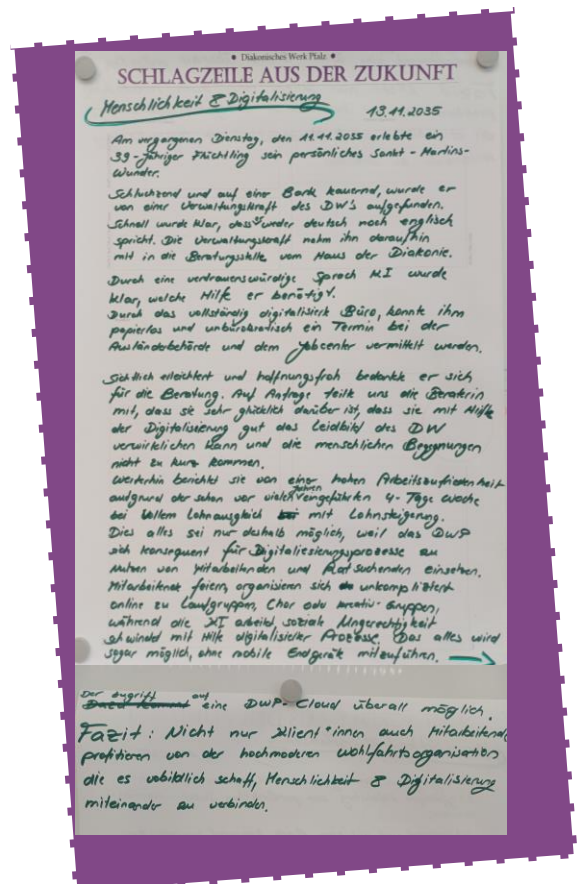 • Diakonisches Werk Pfalz •
SCHLAGZEILE AUS DER ZUKUNFT
Menschlichkeit & Digitalisierung
13.11.2035
Am vergangenen Dienstag, den 11.11.2035 erlebte ein
39-jähriger Flüchtling sein persönliches Sankt-Martins-
Wunder.
Schluchzend und auf einer Bank kauernd, wurde er
von einer Verwaltungskraft des DW's aufgefunden.
Schnell wurde klar, dass er weder deutsch noch englisch
spricht. Die Verwaltungskraft nahm ihn daraufhin
mit in die Beratungsstelle vom Haus der Diakonie.
Durch eine vertrauenswürdige Sprach KI wurde
klar, welche Hilfe er benötigt.
Durch das vollständig digitalisierte Büro, konnte ihm
papierlos und unbürokratisch ein Termin bei der
Ausländerbehörde und dem Jobcenter vermittelt werden.
Sichtlich erleichtert und hoffnungsfroh bedankte er sich
für die Beratung. Auf Anfrage teilte uns die Beraterin
mit, dass sie sehr glücklich darüber ist, dass sie mit Hilfe
der Digitalisierung gut das Leidbild des DW
verwirklichen kann und die menschlichen Begegnungen
nicht zu kurz kommen.
Weiterhin berichtet sie von einer hohen Arbeitszufriedenheit
aufgrund der schon vor vielen Jahren eingeführten 4-Tage Woche
bei vollem Lohnausgleich mit Lohnsteigerung.
Dies alles sei nur deshalb möglich, weil das DWP
sich konsequent für Digitaliesierungsprozesse zu
Nutzen von Mitarbeitenden und Ratsuchenden einsetzen.
Mitarbeitende feiern, organisieren sich unkompliziert
online zu Laufgruppen, Chor oder kreativ-Gruppen,
während die KI arbeitet, soziale Ungerechtigkeit
schwindet mit Hilfe digitalisierter Prozesse. Das alles wird
sogar möglich, ohne mobile Endgeräte mitzuführen.
Der Zugriff auf eine DWP-Cloud überall möglich.
Fazit: Nicht nur Klient*innen auch Mitarbeitende
profitieren von der hochmodernen Wohlfahrtsorganisation
die es vobildlich schaff, Menschlichkeit & Digitalisierung
miteinander zu verbinden.